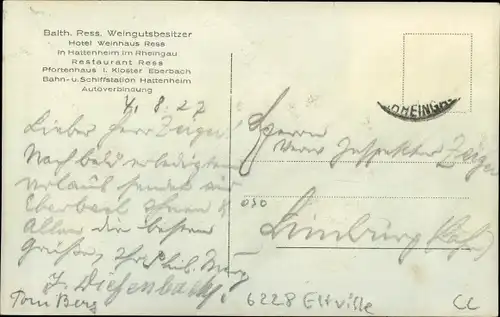 Balth. Ress, Weingutsbesitzer
Hotel Weinhaus Ress
in Hattenheim im Rheingau
Restaurant Ress
Pfortenhaus i. Kloster Eberbach
Bahn- u. Schiffstation Hattenheim
Autoverbindung
RHEING
4. 8. 27
Lieber Herr Zeiger!
Nach bald erledigtem
Urlaub sendet aus
Eberbach Ihnen &
Allen die besten
Grüße, Ihr Phil.
J. Diefenbach
Toni Berg
Herrn
Verw. Inspektor Zeiger
Limburg (Lahn)
6228 Eltville
CC